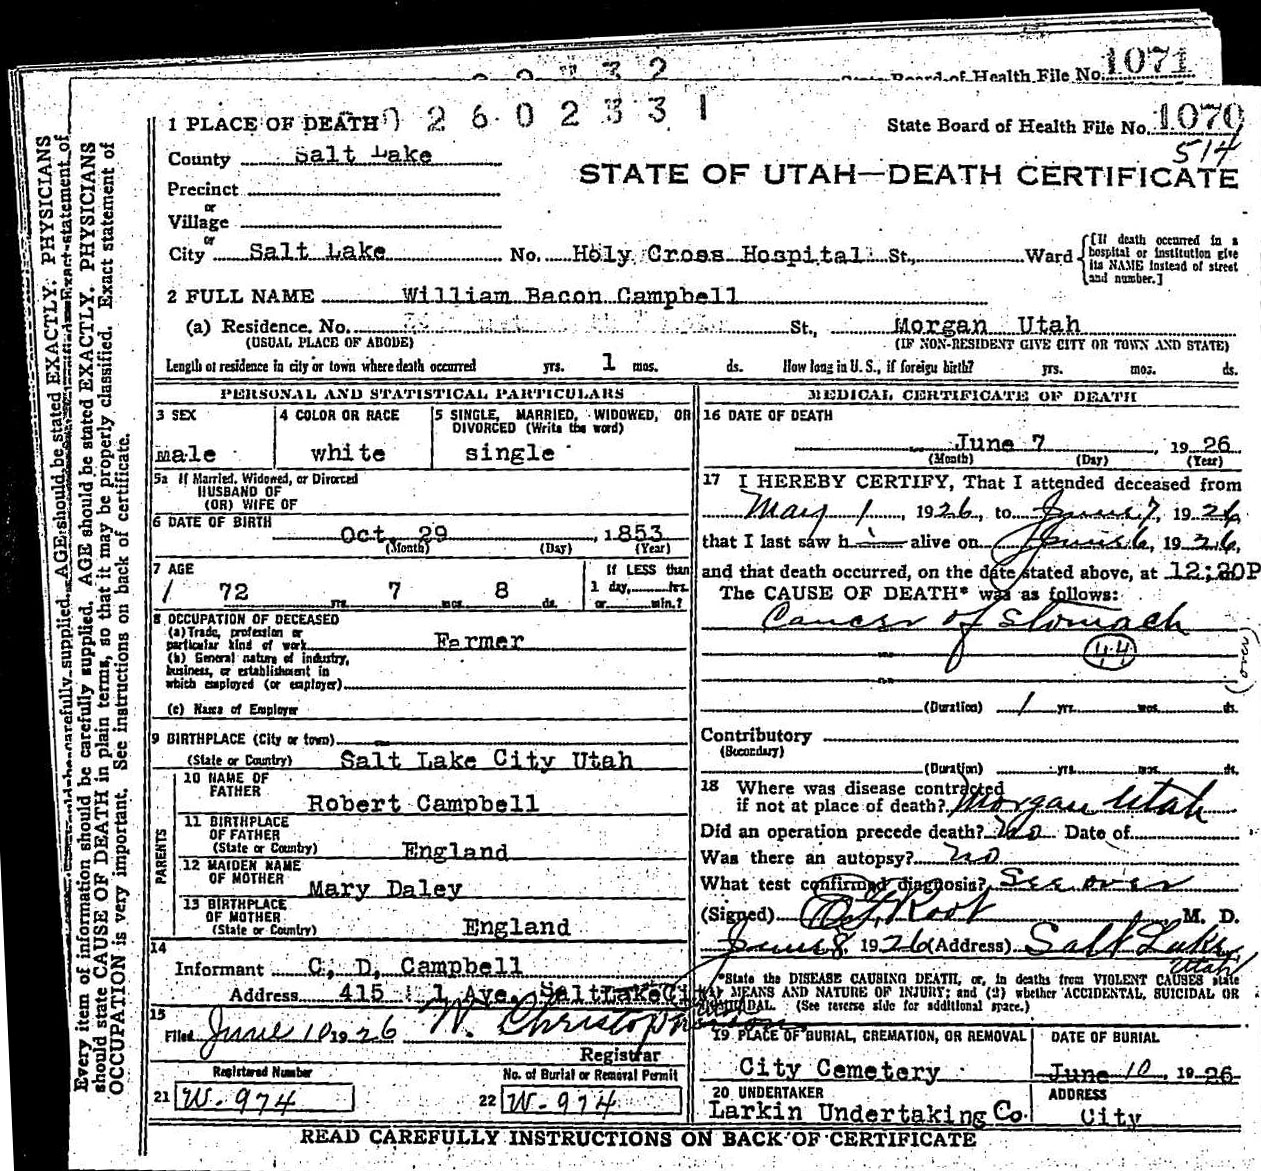 State Board of Health File No. 1071
1 PLACE OF DEATH
0 2 6 0 2 3 3 1
State Board of Health File No. 1070
514
County Salt Lake
STATE OF UTAH—DEATH CERTIFICATE
Precinct
or
Village
or
City Salt Lake No. Holy Cross Hospital St., Ward
[If death occurred in a hospital or institution give its NAME instead of street and number.]
2 FULL NAME William Bacon Campbell
(a) Residence, No. St., Morgan Utah
(USUAL PLACE OF ABODE) (IF NON-RESIDENT GIVE CITY OR TOWN AND STATE)
Length of residence in city or town where death occurred yrs. 1 mos. ds. How long in U. S., if foreign birth? yrs. mos. ds.
PERSONAL AND STATISTICAL PARTICULARS
3 SEX
male
4 COLOR OR RACE
white
5 SINGLE, MARRIED, WIDOWED, OR
DIVORCED (Write the word)
single
5a If Married, Widowed, or Divorced
HUSBAND OF
(OR) WIFE OF
6 DATE OF BIRTH
Oct. 29, 1853
(Month) (Day) (Year)
7 AGE
72 yrs. 7 mos. 8 ds.
If LESS than
1 day, hrs.
or min.?
8 OCCUPATION OF DECEASED
(a) Trade, profession or
particular kind of work Farmer
(b) General nature of industry,
business, or establishment in
which employed (or employer)
(c) Name of Employer
9 BIRTHPLACE (City or town)
(State or Country) Salt Lake City Utah
PARENTS
10 NAME OF
FATHER
Robert Campbell
11 BIRTHPLACE
OF FATHER
(State or Country) England
12 MAIDEN NAME
OF MOTHER
Mary Daley
13 BIRTHPLACE
OF MOTHER
(State or Country) England
14
Informant C. D. Campbell
Address 415 1 Ave. Salt Lake City
15
Filed June 10 1926 W. Christopherson
Registrar
Registered Number No. of Burial or Removal Permit
21 W-974 22 W-974
MEDICAL CERTIFICATE OF DEATH
16 DATE OF DEATH
June 7, 1926
(Month) (Day) (Year)
17 I HEREBY CERTIFY, That I attended deceased from
May 1, 1926, to June 7, 1926,
that I last saw h i alive on June 6, 1926,
and that death occurred, on the date stated above, at 12:20P
The CAUSE OF DEATH* was as follows:
Cancer of Stomach
44
(over)
(Duration) 1 yrs. mos. ds.
Contributory
(Secondary)
(Duration) yrs. mos. ds.
18 Where was disease contracted
if not at place of death? Morgan Utah
Did an operation precede death? No Date of
Was there an autopsy? No
What test confirmed diagnosis? See over
(Signed) Root M. D.
June 8, 1926 (Address) Salt Lake,
Utah
*State the DISEASE CAUSING DEATH, or, in deaths from VIOLENT CAUSES state
MEANS AND NATURE OF INJURY; and (2) whether ACCIDENTAL, SUICIDAL OR
(See reverse side for additional space.)
19 PLACE OF BURIAL, CREMATION, OR REMOVAL
City Cemetery
DATE OF BURIAL
June 10, 1926
20 UNDERTAKER
Larkin Undertaking Co.
ADDRESS
City
READ CAREFULLY INSTRUCTIONS ON BACK OF CERTIFICATE
Every item of information should be carefully supplied. AGE should be stated EXACTLY. PHYSICIANS
should state CAUSE OF DEATH in plain terms, so that it may be properly classified. Exact statement of
OCCUPATION is very important. See instructions on back of certificate.